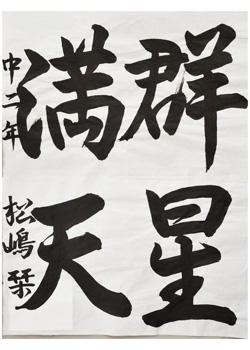 群星
満天
中二年 松嶋栞